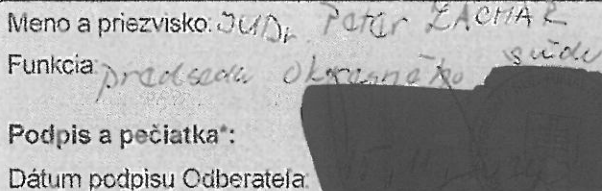 Meno a priezvisko: JUDr Peter ZACHAR
Funkcia: predseda Okresného súdu
Podpis a pečiatka*:
Dátum podpisu Odberatela: